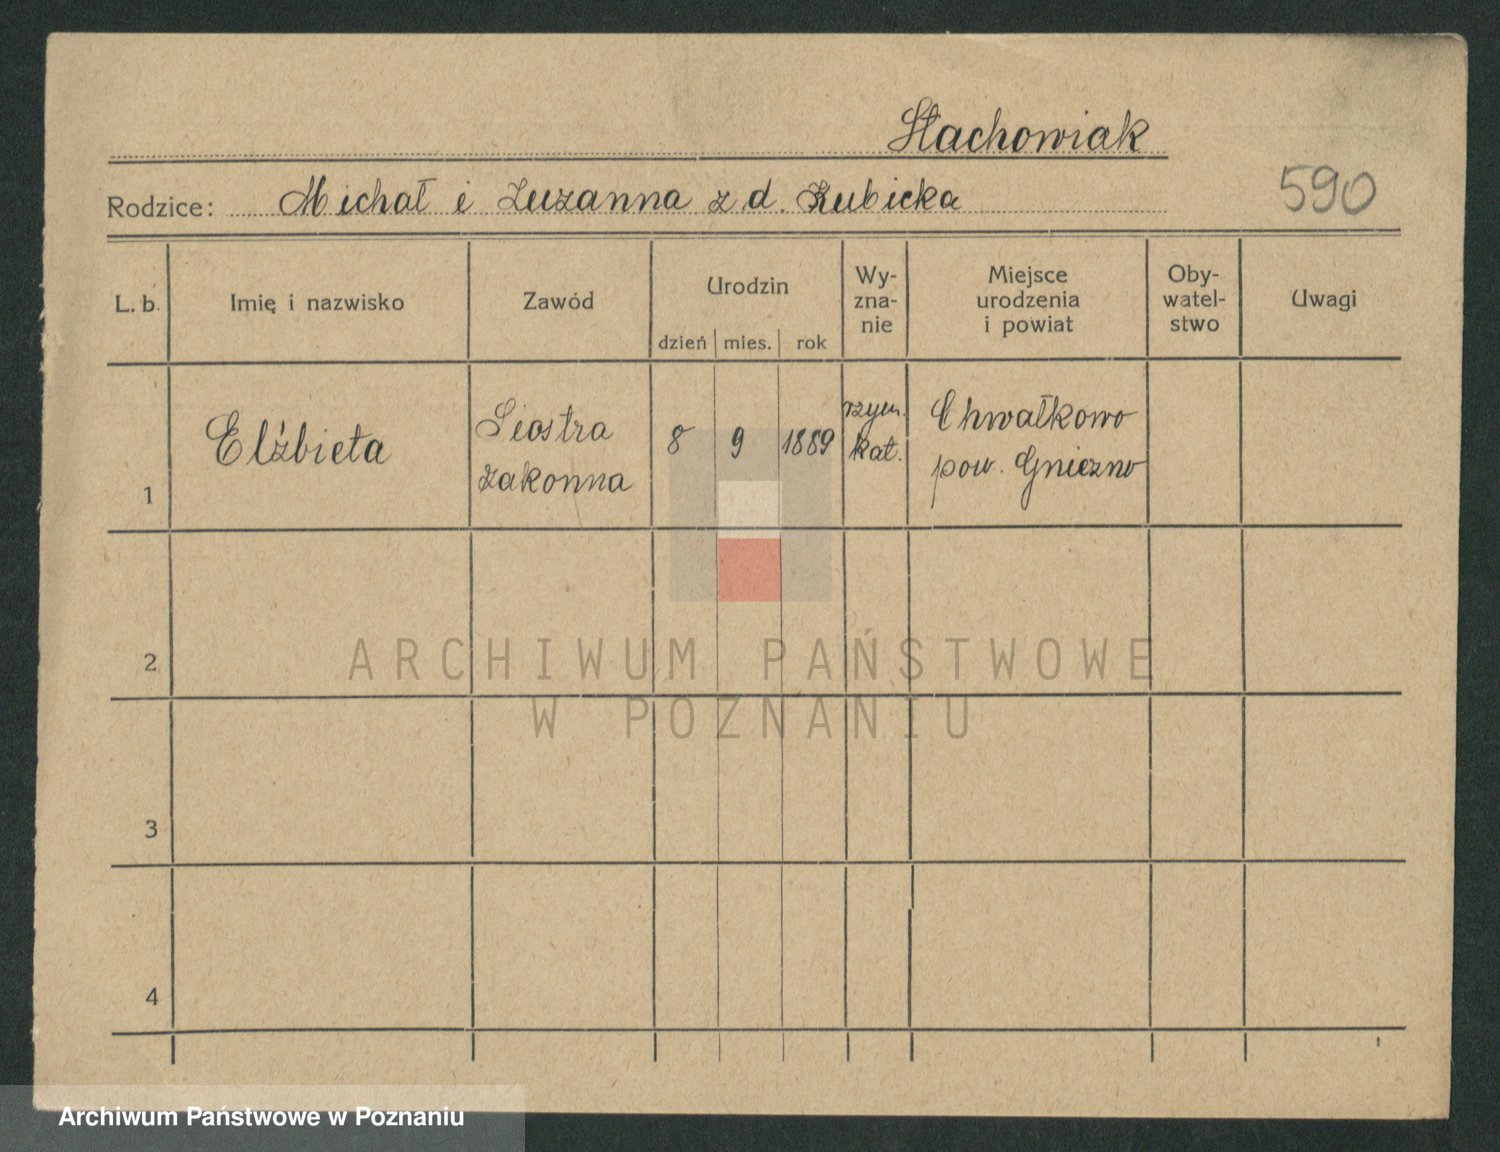 Stachowiak
Rodzice: Michał i Zuzanna z d. Kubicka
590
L. b. Imię i nazwisko Zawód Urodzin Wy-
zna-
nie Miejsce
urodzenia
i powiat Oby-
watel-
stwo Uwagi
dzień mies. rok
1 Elżbieta Siostra
zakonna 8 9 1889 rzym.
kat. Chwałkowo
pow. Gniezno
2
3
4
ARCHIWUM PAŃSTWOWE
W POZNANIU
Archiwum Państwowe w Poznaniu